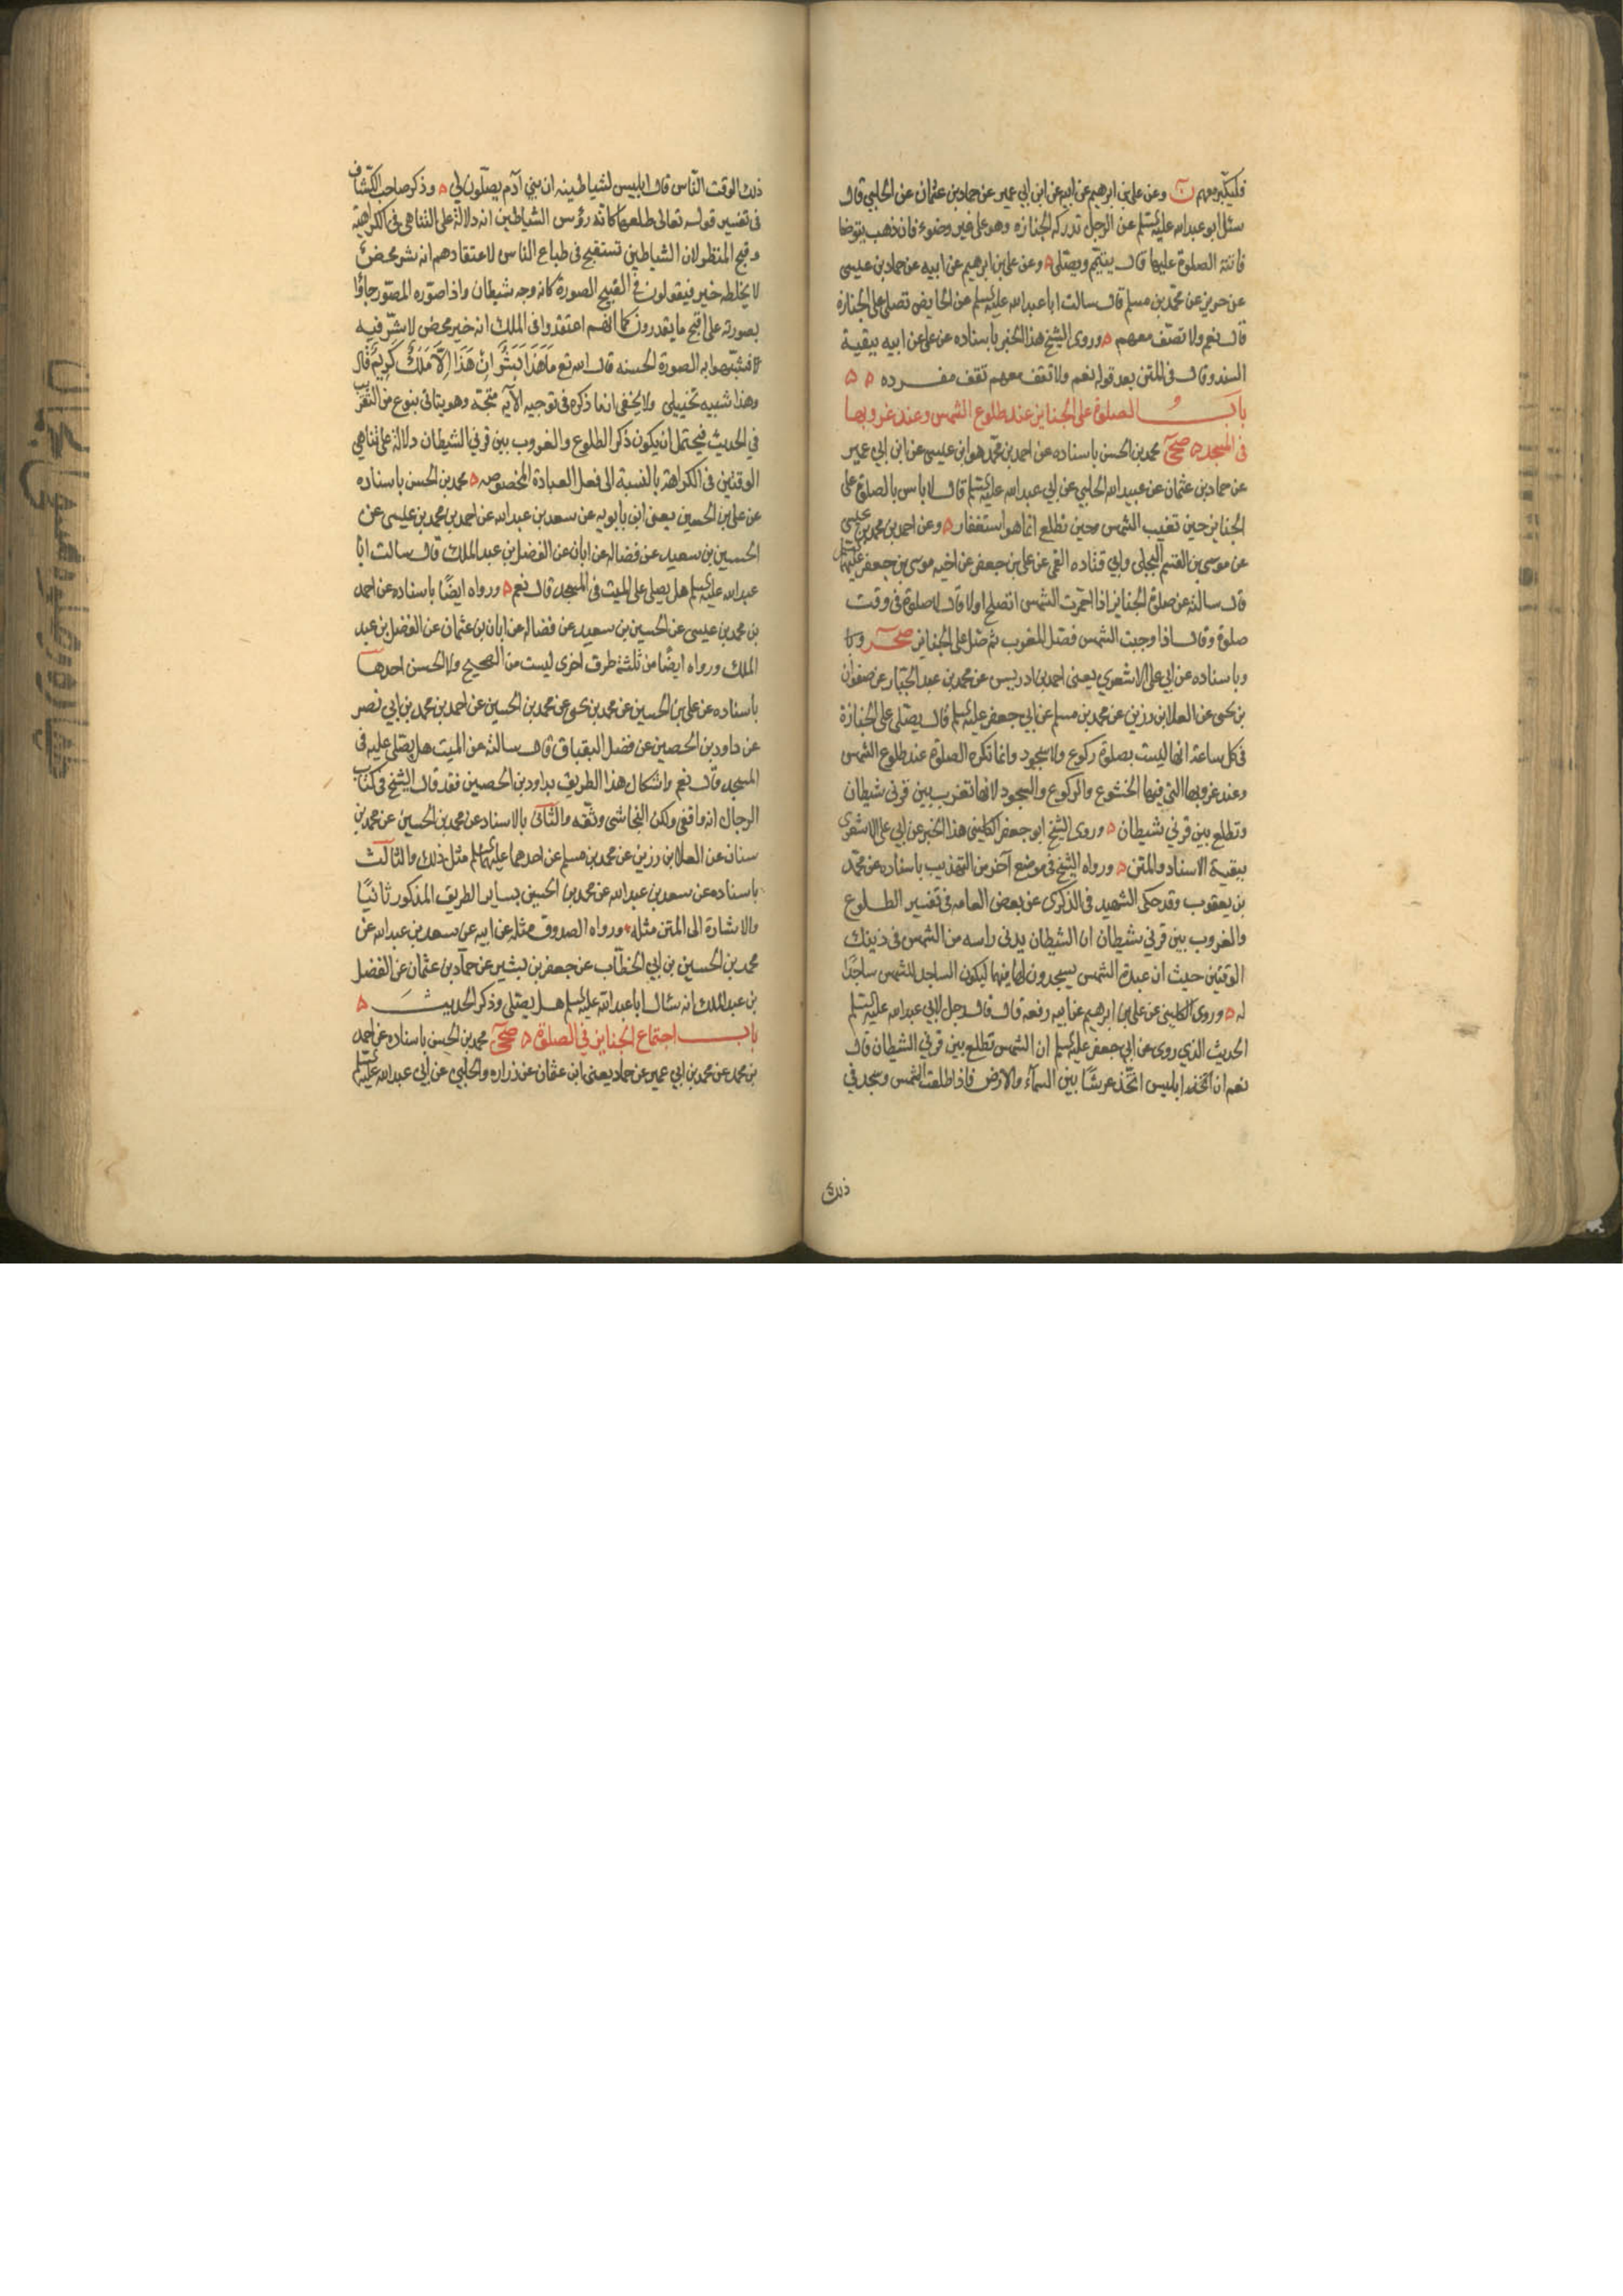 فليكبر معهم ن وعن علي بن ابرهيم عن ابيه عن ابن ابي عمير عن حماد بن عثمان عن الحلبي قال
سئل ابو عبد الله عليه السلم عن الرجل تدركه الجنازه وهو على غير وضوء فان ذهب يتوضا
فاتته الصلوة عليها قال يتيمم ويصلى ه وعن علي بن ابرهيم عن ابيه عن حماد بن عيسى
عن حريز عن محمد بن مسلم قال سالت ابا عبد الله عليه السلم عن الحايض تصلى على الجنازة
قال نعم ولا تصف معهم ه وروى الشيخ هذا الخبر باسناده عن علي عن ابيه ببقية
السند وقال في المتن بعد قوله نعم ولا تقف معهم تقف مفرده ه ه
باب الصلوة على الجنايز عند طلوع الشمس وعند غروبها
في المسجد ه صحي محمد بن الحسن باسناده عن احمد بن محمد هو ابن عيسى عن ابن ابي عمير
عن حماد بن عثمان عن عبيد الله الحلبي عن ابي عبد الله عليه السلم قال لا باس بالصلوة على
الجنايز حين تغيب الشمس وحين تطلع انما هو استغفار ه وعن احمد بن محمد بن عيسى
عن موسى بن القسم البجلي وابي قتاده القمي عن علي بن جعفر عن اخيه موسى بن جعفر عليهما السلم
قال سالته عن صلوة الجنايز اذا احمرت الشمس اتصلح او لا قال لا صلوة في وقت
صلوة وقال اذا وجبت الشمس فصل المغرب ثم صل على الجنايز صحر وبا
وباسناده عن ابي علي الاشعري يعنى احمد بن ادريس عن محمد بن عبد الجبار عن صفوان
بن يحيى عن العلا بن رزين عن محمد بن مسلم عن ابي جعفر عليه السلم قال يصلى على الجنازة
في كل ساعة انها ليست بصلوة ركوع ولا سجود وانما تكره الصلوة عند طلوع الشمس
وعند غروبها التي فيها الخشوع والركوع والسجود لانها تغرب بين قرني شيطان
وتطلع بين قرني شيطان ه وروى الشيخ ابو جعفر الكليني هذا الخبر عن ابي علي الاشعرى
ببقية الاسناد والمتن ه ورواه الشيخ في موضع آخر من التهذيب باسناده عن محمد
بن يعقوب وقد حكى الشهيد في الذكرى عن بعض العامه في تفسير الطلوع
والغروب بين قرني شيطان ان الشيطان يدنى راسه من الشمس في ذينك
الوقتين حيث ان عبدة الشمس يسجدون لها فيهما ليكون الساجد للشمس ساجدا
له ه وروى الكليني عن علي بن ابرهيم عن ابيه رفعه قال قال رجل لابي عبد الله عليه السلم
الحديث الذي روى عن ابي جعفر عليه السلم ان الشمس تطلع بين قرني الشيطان قال
نعم ان ابليس اتخذ عريشا بين السمآء والارض فاذا طلعت الشمس وسجد في
ذلك
ذلك الوقت الناس قال ابليس لشياطينه ان بني آدم يصلون لي ه وذكر صاحب الكشاف
في تفسير قوله تعالى طلعها كانه رؤس الشياطين انه دلالة على التناهى في الكراهية
وقبح المنظر لان الشياطين تستقبح في طباع الناس لاعتقادهم انه شر محض
لا يخلطه خير فيقولون في القبيح الصورة كانه وجه شيطان واذا صوره المصور جاؤا
بصورته على اقبح ما يقدرون كما انهم اعتقدوا في الملك انه خير محض لا شر فيه
فشبهوا به الصورة الحسنه قال الله تع مَا هَذَا بَشَرًا اِنْ هَذَا اِلَّا مَلَكٌ كَرِيمٌ قال
وهذا شبيه تخييلي ولا يخفى ان ما ذكره في توجيه الآيه متجه وهو يتاتى بنوع من التقريب
في الحديث فيحتمل ان يكون ذكر الطلوع والغروب بين قرني الشيطان دلالة على تناهي
الوقتين في الكراهة بالنسبة الى فعل العبادة المخصوصه ه محمد بن الحسن باسناده
عن علي بن الحسين يعنى ابن بابويه عن سعد بن عبد الله عن احمد بن محمد بن عيسى عن
الحسين بن سعيد عن فضاله عن ابان عن الفضل بن عبد الملك قال سالت ابا
عبد الله عليه السلم هل يصلى على الميت في المسجد قال نعم ه ورواه ايضا باسناده عن احمد
بن محمد بن عيسى عن الحسين بن سعيد عن فضاله عن ابان بن عثمان عن الفضل بن عبد
الملك ورواه ايضا من ثلثة طرق اخرى ليست من الصحيح ولا الحسن احدها
باسناده عن علي بن الحسين عن محمد بن يحيى عن محمد بن الحسين عن احمد بن محمد بن ابي نصر
عن داود بن الحصين عن فضل البقباق قال سالته عن الميت هل يصلى عليه في
المسجد قال نعم واشكال هذا الطريق بداود بن الحصين فقد قال الشيخ في كتاب
الرجال انه واقفي ولكن النجاشى وثقه والثاني بالاسناد عن محمد بن الحسين عن محمد بن
سنان عن العلا بن رزين عن محمد بن مسلم عن احدهما عليهما السلم مثل ذلك والثالث
باسناده عن سعد بن عبد الله عن محمد بن الحسين بساير الطريق المذكور ثانيا
والاشارة الى المتن مثله ورواه الصدوق مثله عن ابيه عن سعد بن عبد الله عن
محمد بن الحسين بن ابي الخطاب عن جعفر بن بشير عن حماد بن عثمان عن الفضل
بن عبد الملك انه سال ابا عبد الله عليه السلم هل يصلى وذكر الحديث ه
باب اجتماع الجنايز في الصلوة ه صحي محمد بن الحسن باسناده عن احمد
بن محمد عن محمد بن ابي عمير عن حماد يعنى ابن عثمان عن زراره والحلبي عن ابي عبد الله عليه السلم